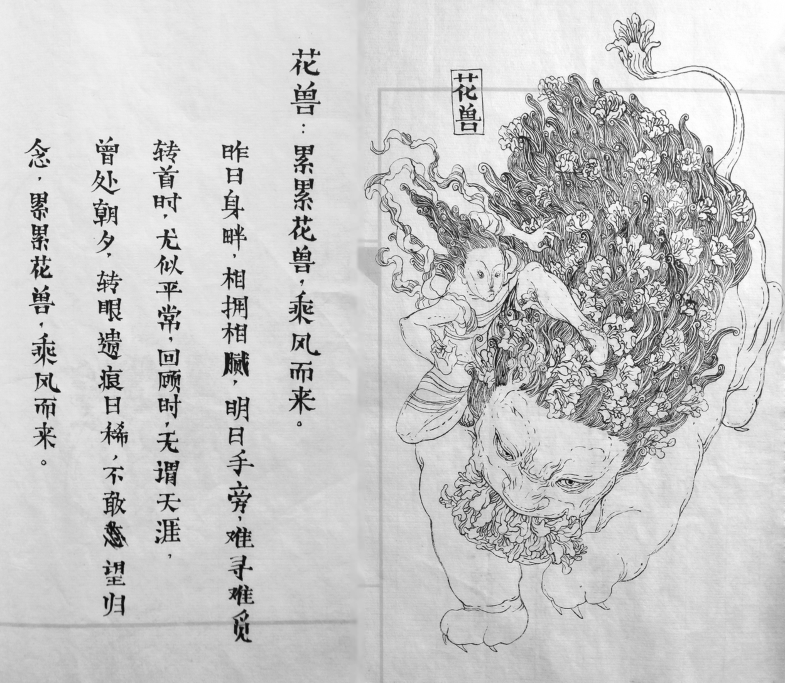 花兽：累累花兽，乘风而来。
昨日身畔，相拥相腻，明日手旁，难寻难觅
转首时，尤似平常，回顾时，无谓天涯，
曾处朝夕，转眼遗痕日稀，不敢 望归
念，累累花兽，乘风而来。
花兽